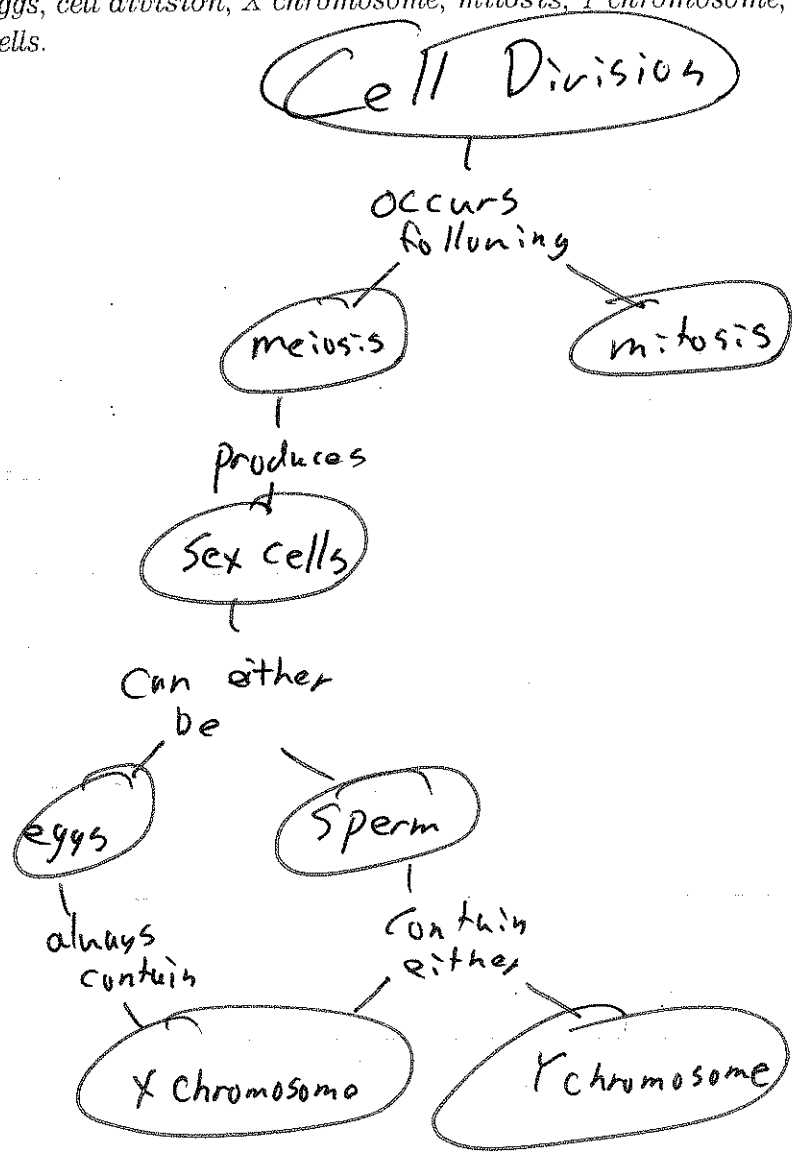 ggs, cell division, X chromosome, mitosis, Y chromosome,
ells.
Cell Division
occurs
following
meiosis mitosis
produces
Sex cells
Can either
be
eggs Sperm
always
contain
contain
either
X chromosome Y chromosome